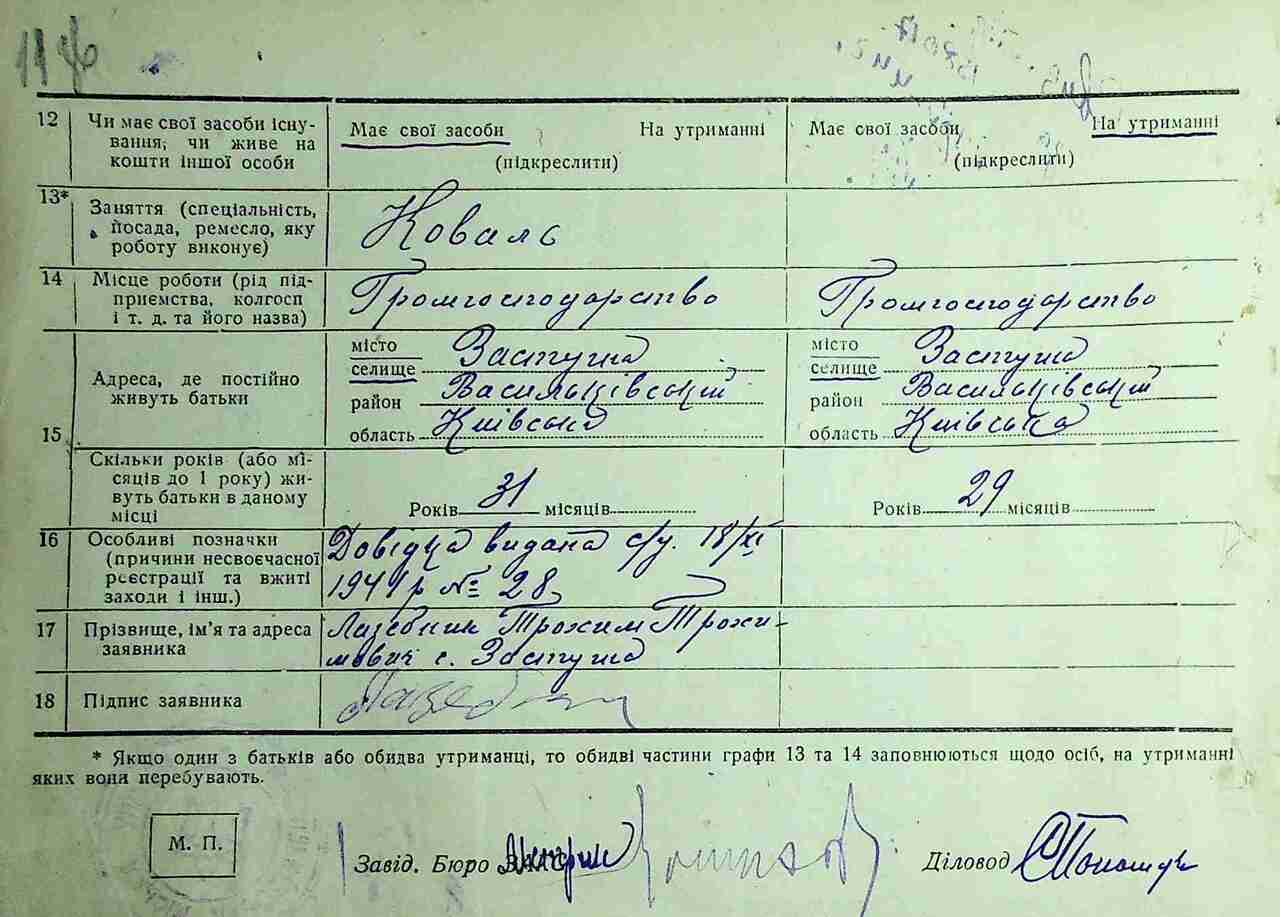 12 Чи має свої засоби існу-
вання, чи живе на
кошти іншої особи
Має свої засоби На утриманні
(підкреслити)
Має свої засоби На утриманні
(підкреслити)
13* Заняття (спеціальність,
посада, ремесло, яку
роботу виконує)
Коваль
14 Місце роботи (рід під-
приємства, колгосп
і т. д. та його назва)
Громгосподарство
Громгосподарство
15 Адреса, де постійно
живуть батьки
місто
селище Застуга
район Васильківський
область Київська
місто
селище Застуга
район Васильківський
область Київська
Скільки років (або мі-
сяців до 1 року) жи-
вуть батьки в даному
місці
Років 31 місяців
Років 29 місяців
16 Особливі позначки
(причини несвоєчасної
реєстрації та вжиті
заходи і інш.)
Довідка видана с/у. 18/XI
1941 р № 28
17 Прізвище, ім'я та адреса
заявника
Лазебник Трохим Трохи-
мович с. Застуга
18 Підпис заявника
Лазебник
* Якщо один з батьків або обидва утриманці, то обидві частини графи 13 та 14 заповнюються щодо осіб, на утриманні
яких вони перебувають.
М. П.
Завід. Бюро ЗАГС
Діловод